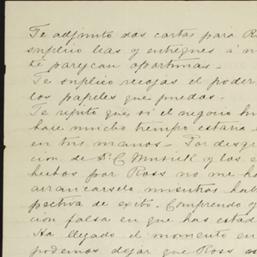 Te adjunto dos cartas para R
suplico leas y entregues si
te parezcan oportunas.
Te suplico recojas el poder
los papeles que puedas.
Te repito que, si el negocio
hace mucho tiempo estaría
en tus manos. Por desgra
cion de D. C. y los
hechos por Ross no me ha
arrancarselo mientras hab
pectiva de exito. Comprendo
ción falsa en que has estad
Ha llegado el momento en
podemos dejar que Ross